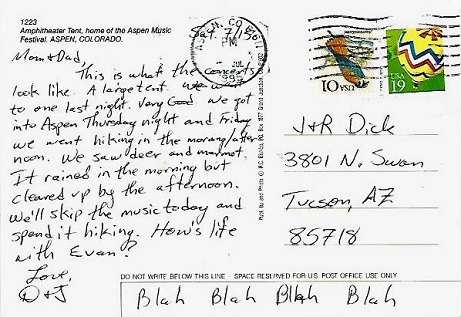 1223
Amphitheater Tent, home of the Aspen Music
Festival. ASPEN, COLORADO.
Sat. 7/18
ASPEN, CO 81611
PM
JUL
10 USA
USA
19
Mom & Dad,
This is what the concerts
look like. A large tent. We went
to one last night. Very Good. We got
into Aspen Thursday night and Friday
we went hiking in the morning/after-
noon. We saw deer and marmot.
It rained in the morning but
cleared up by the afternoon.
We'll skip the music today and
spend it hiking. How's life
with Evan?
Love,
D & J
J & R Dick
3801 N. Swan
Tucson, AZ
85718
DO NOT WRITE BELOW THIS LINE - SPACE RESERVED FOR US POST OFFICE USE ONLY
Blah Blah Blah Blah